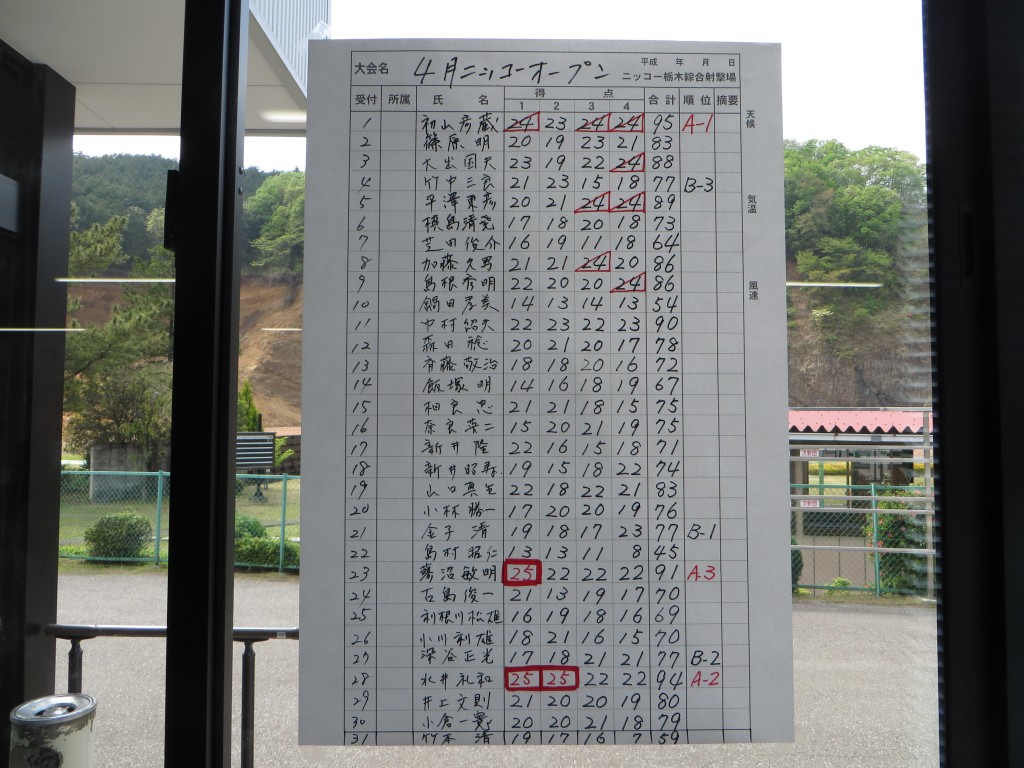 大会名 4月ニッコーオープン 平成 年 月 日
ニッコー栃木綜合射撃場
受付 所属 氏名 得点 合計 順位 摘要
1 2 3 4
1 初山彦蔵 24 23 24 24 95 A-1
2 篠原明 20 19 23 21 83
3 大出国夫 23 19 22 24 88
4 竹中三良 21 23 15 18 77 B-3
5 平澤東彦 20 21 24 24 89
6 槙島清発 17 18 20 18 73
7 芝田俊介 16 19 11 18 64
8 加藤久男 21 21 24 20 86
9 島根秀明 22 20 20 24 86
10 鍋田 14 13 14 13 54
11 中村 22 23 22 23 90
12 森田聡 20 21 20 17 78
13 斉藤敬治 18 18 20 16 72
14 飯塚明 14 16 18 19 67
15 相良忠 21 21 18 15 75
16 奈良栄二 15 20 21 19 75
17 新井隆 22 16 15 18 71
18 新井昭寿 19 15 18 22 74
19 山口真生 22 18 22 21 83
20 小林勝一 17 20 20 19 76
21 金子清 19 18 17 23 77 B-1
22 島村昭仁 13 13 11 8 45
23 蓼沼敏明 25 22 22 22 91 A-3
24 左島俊一 21 13 19 17 70
25 利根川松雄 16 19 18 16 69
26 小川利雄 18 21 16 15 70
27 深谷正光 17 18 21 21 77 B-2
28 水井礼和 25 25 22 22 94 A-2
29 井上文則 21 20 20 19 80
30 小倉一寛 20 20 21 18 79
31 竹本清 19 17 16 7 59
天候
気温
風速